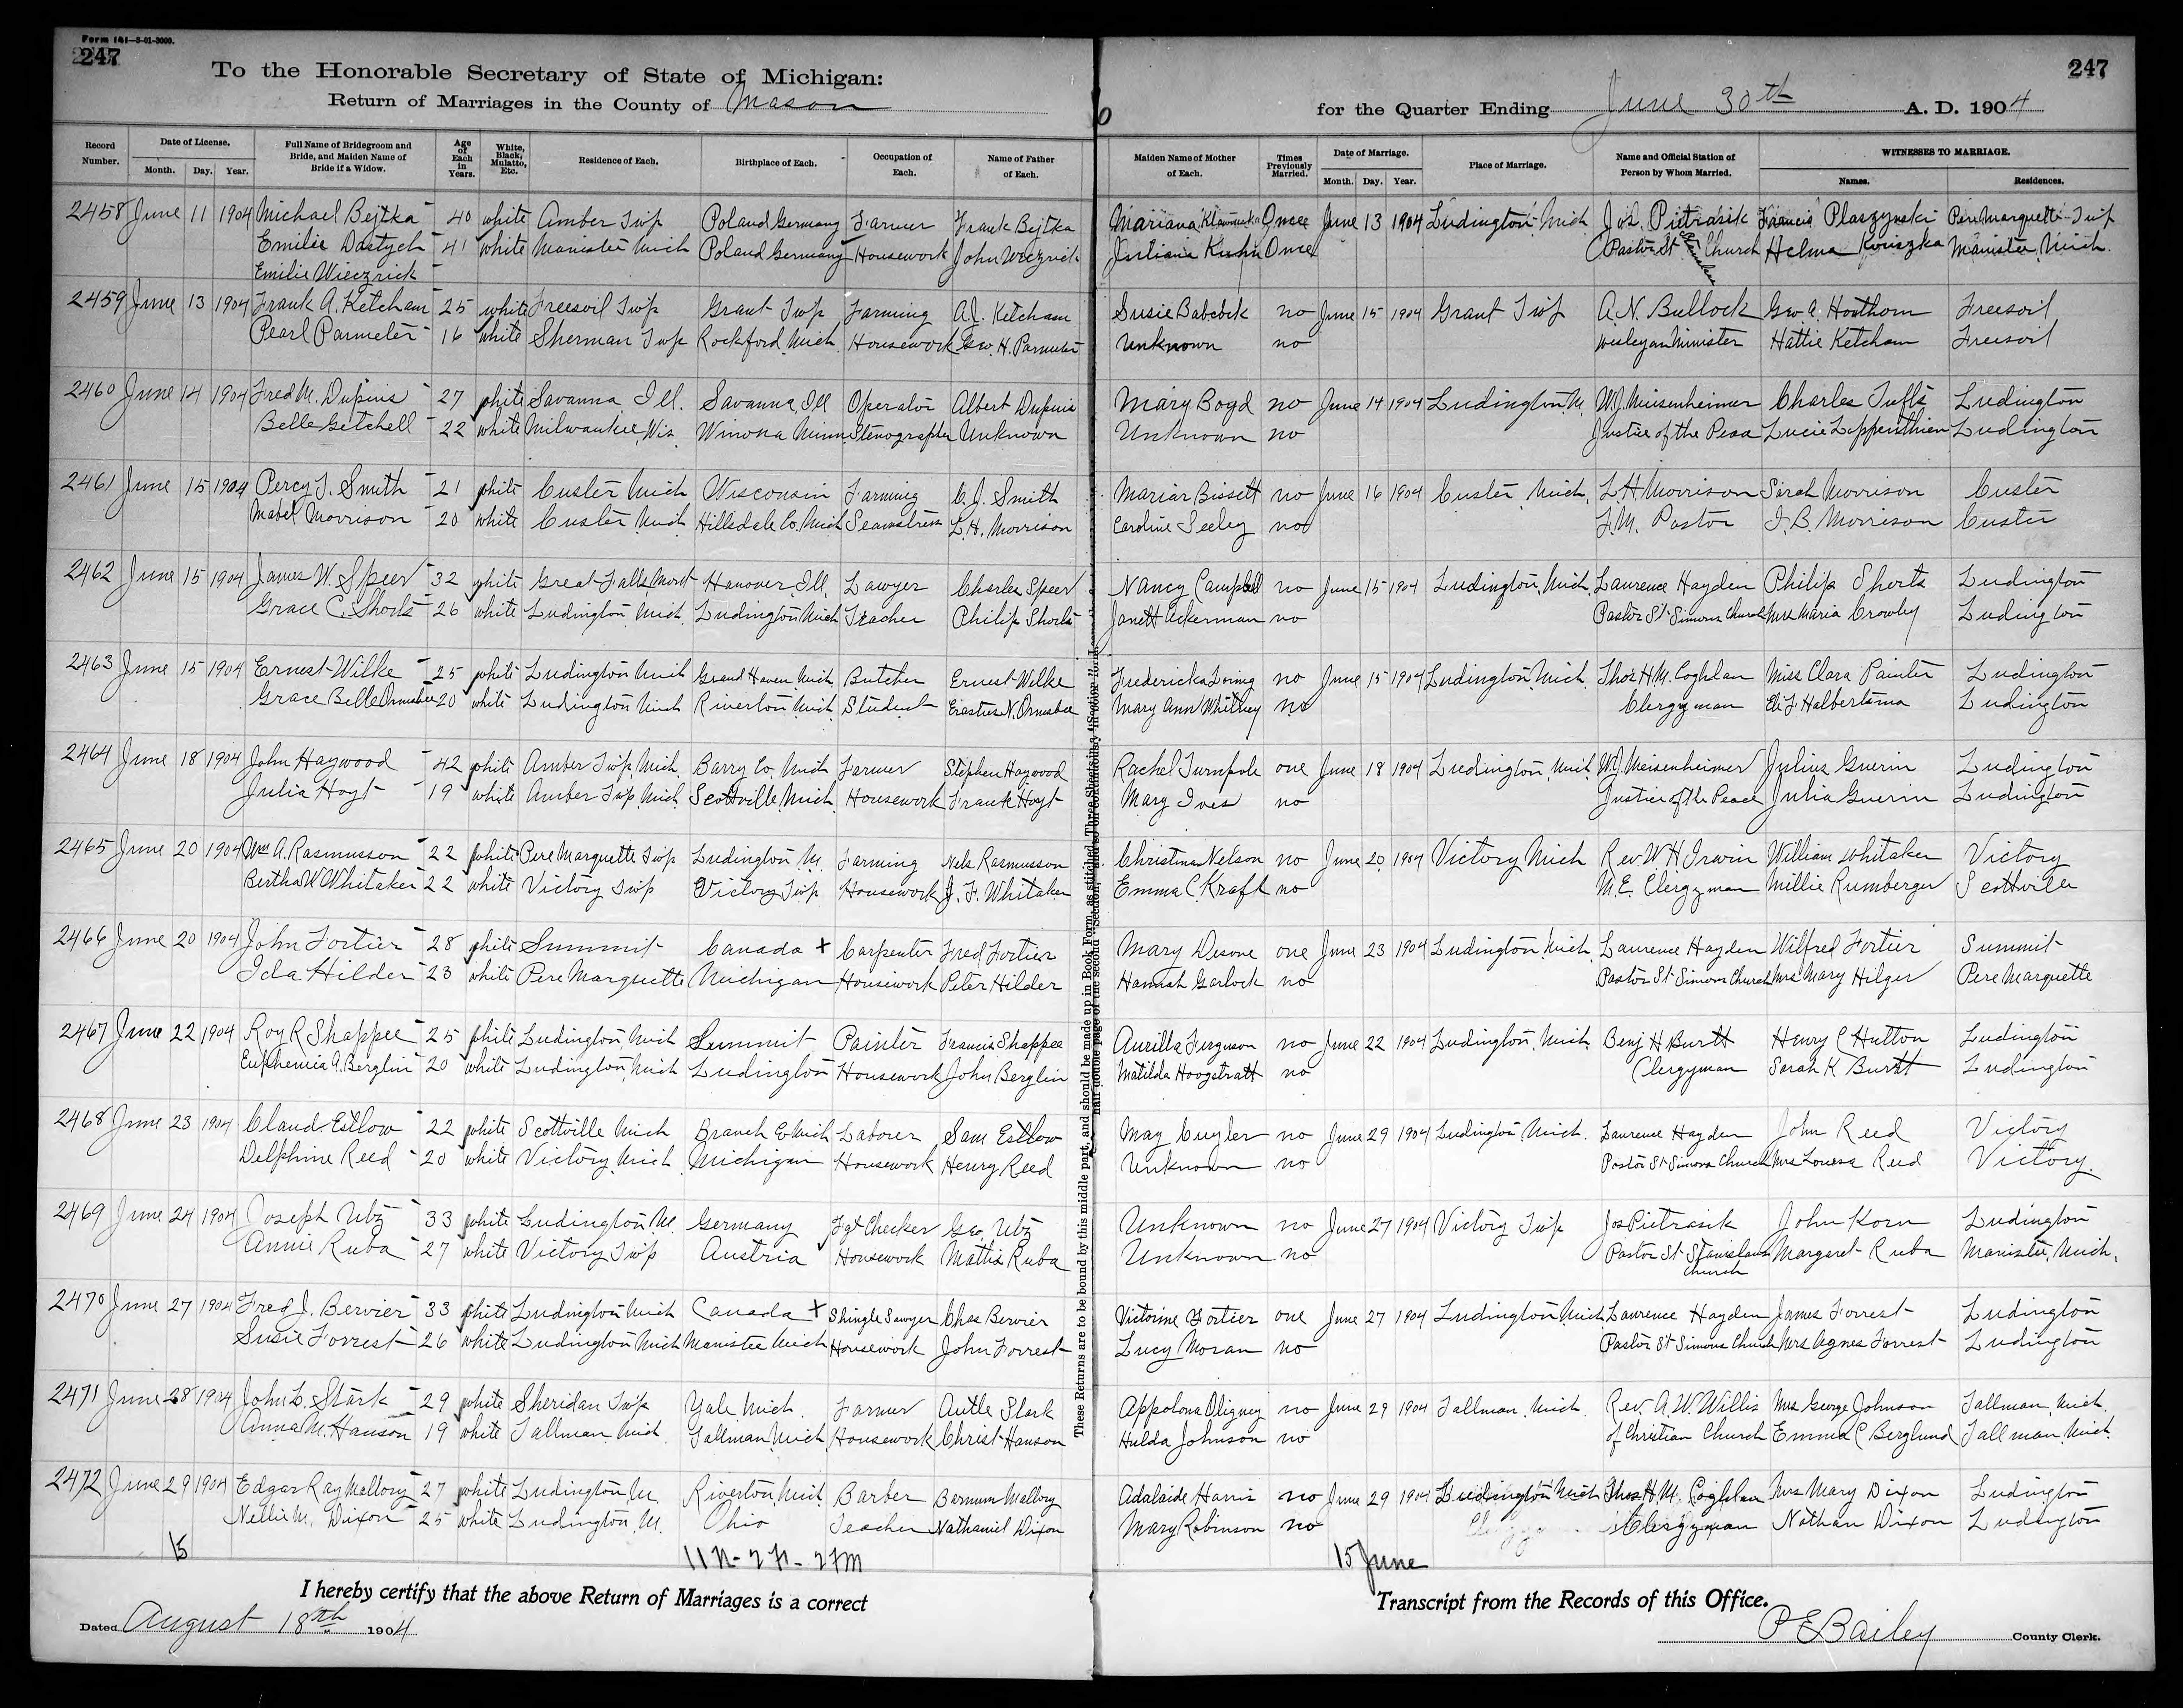 Form 141—5-01-3000.
247
To the Honorable Secretary of State of Michigan:
Return of Marriages in the County of Mason
Record Number.
Date of License.
Month. Day. Year.
Full Name of Bridegroom and Bride, and Maiden Name of Bride if a Widow.
Age of Each in Years.
White, Black, Mulatto, Etc.
Residence of Each.
Birthplace of Each.
Occupation of Each.
Name of Father of Each.
2458 June 11 1904 Michael Bejtka 40 white Amber Twp Poland Germany Farmer Frank Bejtka
Emilie Dastych 41 white Manistee Mich Poland Germany Housework John Wieczrick
Emilie Wieczrick
2459 June 13 1904 Frank A. Ketcham 25 white Freesoil Twp Grant Twp Farming A.J. Ketcham
Pearl Parmeter 16 white Sherman Twp Rockford Mich Housework Geo. H. Parmeter
2460 June 14 1904 Fred M. Dupuis 27 white Savanna Ill. Savanna Ill Operator Albert Dupuis
Belle Getchell 22 white Milwaukee, Wis Winona Minn. Stenographer Unknown
2461 June 15 1904 Percy J. Smith 21 white Custer Mich Wisconsin Farming C. J. Smith
Mabel Morrison 20 white Custer Mich Hillsdale Co. Mich Seamstress L. H. Morrison
2462 June 15 1904 James W. Speer 32 white Great Falls Mont Hanover, Ill. Lawyer Charles Speer
Grace C. Shorts 26 white Ludington Mich Ludington Mich Teacher Philip Shorts
2463 June 15 1904 Ernest Wilke 25 white Ludington Mich Grand Haven Mich Butcher Ernest Wilke
Grace Belle Ormsbee 20 white Ludington Mich Riverton Mich Student Erastus N. Ormsbee
2464 June 18 1904 John Haywood 42 white Amber Twp Mich. Barry Co. Mich Farmer Stephen Haywood
Julia Hoyt 19 white Amber Twp Mich Scottville Mich Housework Frank Hoyt
2465 June 20 1904 Wm A. Rasmusson 22 white Pere Marquette Twp Ludington M. Farming Nels Rasmusson
Bertha W Whitaker 22 white Victory Twp Victory Twp Housework J. F. Whitaker
2466 June 20 1904 John Fortier 28 white Summit Canada x Carpenter Fred Fortier
Ida Hilder 23 white Pere Marquette Michigan Housework Peter Hilder
2467 June 22 1904 Roy R Shappee 25 white Ludington, Mich Summit Painter Francis Shappee
Euphemia A. Berglin 20 white Ludington, Mich Ludington Housework John Berglin
2468 June 23 1904 Claud Estlow 22 white Scottville Mich Branch Co Mich Laborer Sam Estlow
Delphine Reed 20 white Victory Mich Michigan Housework Henry Reed
2469 June 24 1904 Joseph Utz 33 white Ludington M. Germany Fgt Checker Geo. Utz
Annie Ruba 27 white Victory Twp Austria Housework Mattis Ruba
2470 June 27 1904 Fred J. Bervier 33 white Ludington Mich Canada x Shingle Sawyer Chas Bervier
Susie Forrest 26 white Ludington Mich Manistee Mich Housework John Forrest
2471 June 28 1904 John L. Stark 29 white Sheridan Twp Yale Mich. Farmer Autle Stark
Anna M. Hanson 19 white Tallman Mich Tallman Mich Housework Christ Hanson
2472 June 29 1904 Edgar Ray Mallory 27 white Ludington, M. Riverton, Mich Barber Barnum Mallory
Nellie M. Dixon 25 white Ludington, M. Ohio Teacher Nathaniel Dixon
15
I hereby certify that the above Return of Marriages is a correct
Dated August 18th 1904
These Returns are to be bound by this middle part, and should be made up in Book Form, as stitched
247
for the Quarter Ending June 30th A. D. 1904
Maiden Name of Mother of Each.
Times Previously Married.
Date of Marriage.
Month. Day. Year.
Place of Marriage.
Name and Official Station of Person by Whom Married.
WITNESSES TO MARRIAGE.
Names. Residences.
Mariana Once June 13 1904 Ludington Mich Jos. Pietrasik Francis Plaszynski Pere Marquette Twp
Juliana Kuhn Once Pastor St Stanislaus Church Helma Koviszka Manistee, Mich.
Susie Babcock no June 15 1904 Grant Twp A. N. Bullock Geo A. Hawthorn Freesoil
Unknown no Wesleyan Minister Hattie Ketcham Freesoil
Mary Boyd no June 14 1904 Ludington, M. W.J. Meisenheimer Charles Tufts Ludington
Unknown no Justice of the Peace Lucie Loppenthien Ludington
Mariar Bissett no June 16 1904 Custer Mich. L. H. Morrison Sarah Morrison Custer
Caroline Seeley no F.M. Pastor I. B. Morrison Custer
Nancy Campbell no June 15 1904 Ludington, Mich. Laurence Hayden Philip Shorts Ludington
Janett Ackerman no Pastor St Simons Church Mrs Maria Crowley Ludington
Fredericka no June 15 1904 Ludington, Mich. Thos H. M. Coghlan Miss Clara Painter Ludington
Mary Ann Whitney no Clergyman Eli F Halbertsma Ludington
Rachel Turnpole one June 18 1904 Ludington, Mich W.J. Meisenheimer Julius Guerin Ludington
Mary Ives no Justice of the Peace Julia Guerin Ludington
Christina Nelson no June 20 1904 Victory Mich Rev. W. H. Irwin William Whitaker Victory
Emma C. Kraft no M. E. Clergyman Millie Rumberger Scottville
Mary Desone one June 23 1904 Ludington Mich Laurence Hayden Wilfred Fortier Summit
Hannah Garlock no Pastor St Simons Church Mrs Mary Hilger Pere Marquette
Aurilla Ferguson no June 22 1904 Ludington, Mich. Benj H Burtt Henry C Hutton Ludington
Matilda Hoogstratt no Clergyman Sarah K Burtt Ludington
May Cuyler no June 29 1904 Ludington Mich. Laurence Hayden John Reed Victory
Unknown no Pastor St Simons Church Mrs Louesa Reed Victory.
Unknown no June 27 1904 Victory Twp Jos Pietrasik John Korn Ludington
Unknown no Pastor St Stanislaus Church Margaret Ruba Manistee, Mich.
Victorine Fortier one June 27 1904 Ludington Mich Lawrence Hayden James Forrest Ludington
Lucy Moran no Pastor St Simons Church Mrs Agnes Forrest Ludington
Appolona Oligney no June 29 1904 Tallman, Mich. Rev. A. W. Willis Mrs George Johnson Tallman, Mich.
Hulda Johnson no of Christian Church Emma C Berglund Tallman, Mich.
Adalaide Harris no June 29 1904 Ludington Mich Thos. H. M. Coghlan Mrs Mary Dixon Ludington
Mary Robinson no Clergyman Nathan Dixon Ludington
15 June
Transcript from the Records of this Office.
P E Bailey County Clerk.